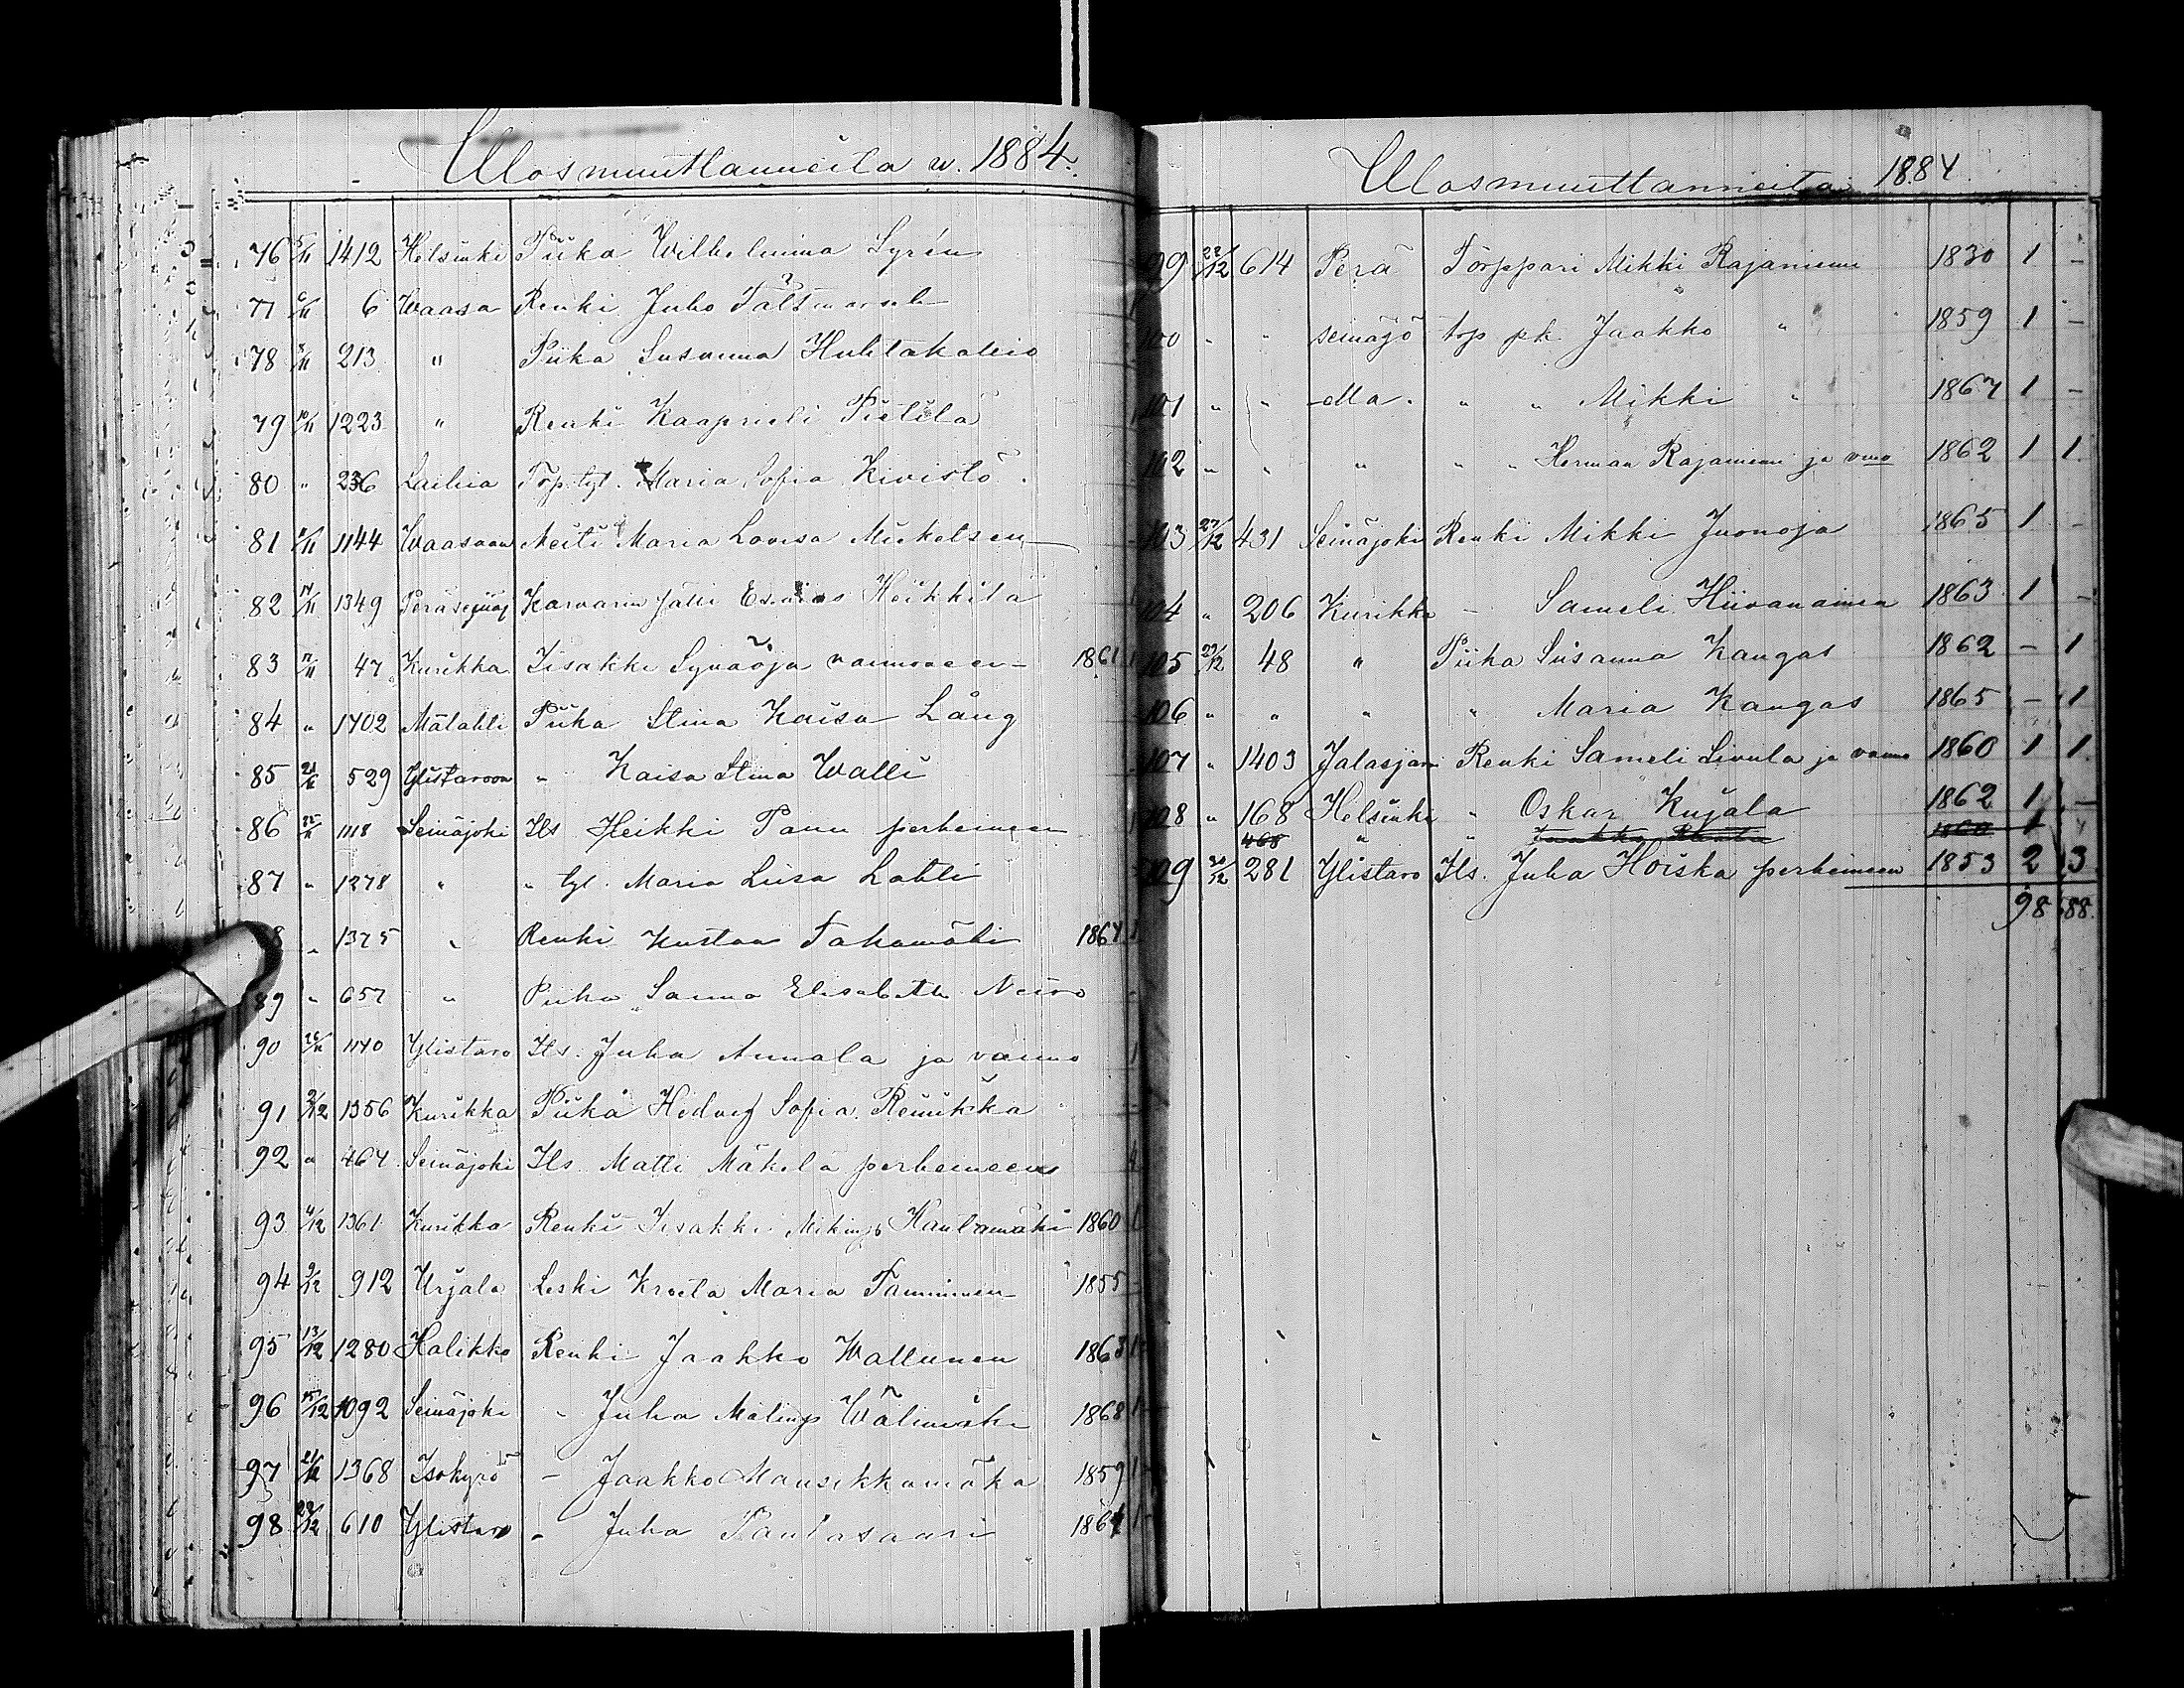 Ulosmuuttaneita w. 1884.
76 5/11 1412 Helsinki Piika Wilhelmina Syrén
77 6/11 6 Waasa Renki Juho
78 8/11 213 " Piika Susanna Huhtakallio
79 10/11 1223 " Renki Kaaprieli Pietilä
80 " 236 Laihia Top. tyt. Maria Sofia Kivistö
81 11/11 1144 Waasaan Neiti Maria Lovisa Mickelsen
82 14/11 1349 Karvarin Esaias Heikkilä
83 17/11 47 Kurikka Iisakki Synäoja vaimoneen 1861 1
84 " 1402 Piika Stina Kaisa Lång
85 21/11 529 Ylistaroon " Kaisa Stina Walli
86 25/11 1118 Seinäjoki Its Heikki Panu perheineen
87 " 1278 " " tyt. Maria Liisa Lahti
8 " 1375 " Renki Kustaa Takamäki 1864 1
89 " 657 " Piika Sanna Elisabeth Neiro
90 26/11 1140 Ylistaro Its. Juha Annala ja vaimo 1
91 2/12 1356 Kurikka Piika Hedvig Sofia Reinikka
92 " 464 Seinäjoki Its Matti Mäkelä perheineen 4
93 4/12 1361 Kurikka Renki Iisakki Hautamäki 1860 1
94 9/12 912 Urjala Leski Kreeta Maria Tamminen 1855 -
95 13/12 1280 Halikko Renki Jaakko Wallunen 1863 1
96 15/12 1092 Seinäjoki " Juha Wälimäki 1868 1
97 21/12 1368 Isokyrö - Jaakko Mansikkamäki 1859 1
98 22/12 610 Ylistaro - Juha Pantasaari 1864 1
Ulosmuuttaneita 1884
99 22/12 614 Perä Torppari Mikki Rajaniemi 1830 1 -
100 " " Seinäjo top pk. Jaakko " 1859 1 -
101 " " " " Mikki " 1867 1 -
102 " " " " " Herman Rajaniemi ja vmo 1862 1 1
103 27/12 431 Seinäjoki Renki Mikki Juonoja 1865 1 -
104 " 206 Kurikka - Sameli Hiivanainen 1863 1 -
105 29/12 48 " Piika Susanna Kangas 1862 - 1
106 " " " " Maria Kangas 1865 - 1
107 " 1403 Jalasjärvi Renki Sameli Sivula ja vaimo 1860 1 1
108 " 168 Helsinki " Oskar Kujala 1862 1 -
468 " " 1860 1
109 30/12 281 Ylistaro Its. Juha Hoiska perheineen 1853 2 3
98 88.